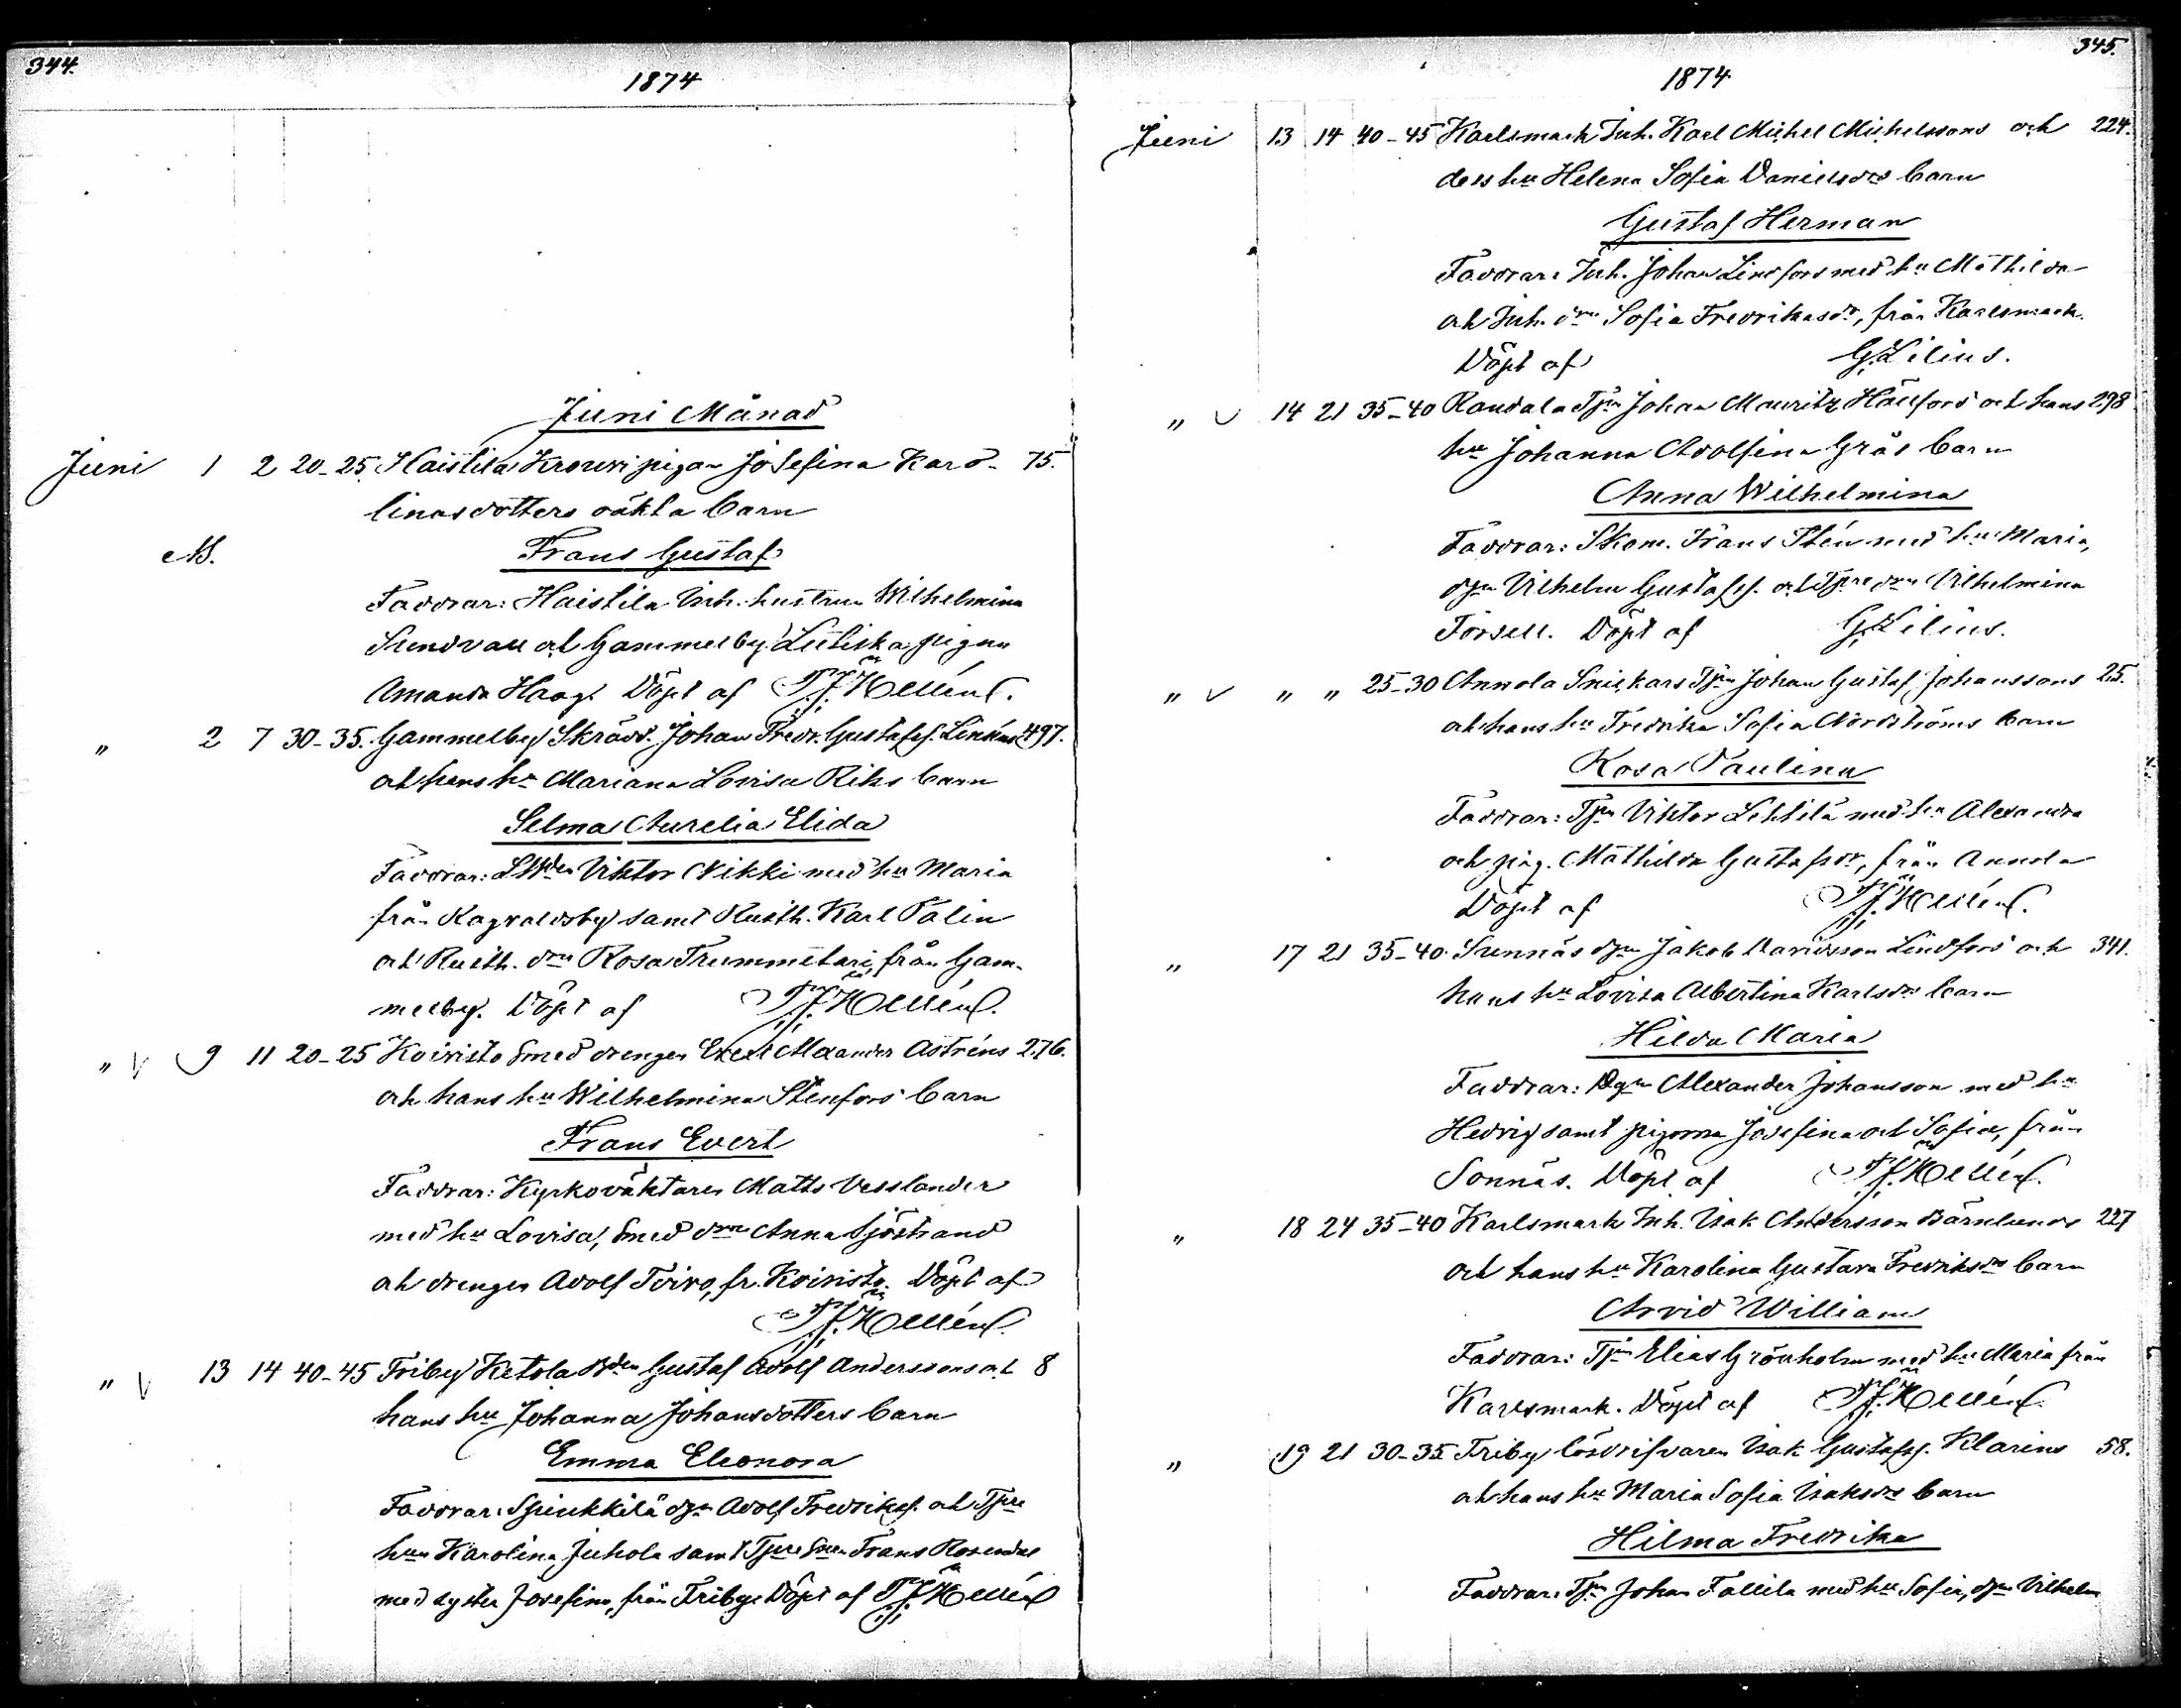 344.
1874
Juni Månad
Juni 1 2 20-25. Haistila Krouvi pigan Josefina Karo- 75.
linasdotters oäkta barn
Frans Gustaf
Faddrar: Haistila Inh. hustrun Wilhelmina
Sundvall och Gammelby pigan
Amanda Haag. Döpt af Hellén.
" 2 7 30-35. Gammelby Skrädd. Johan Fredr. Gustafss. Linéns 497.
och hans hu Mariana Lovisa Riks barn
Selma Aurelia Elida
Faddrar: Viktor Nikki med hu Maria
från Ragvaldsby samt Rusth. Karl Palin
och Rusth. drn Rosa Trummetari, från Gam-
melby. Döpt af Hellén.
" V 9 11 20-25 Koivisto Smed drengen Evert Alexander Astréns 276.
och hans hu Wilhelmina Stenfors barn
Frans Evert
Faddrar: Kyrkoväktaren Matts Vesslander
med hu Lovisa, Smed drn Anna Sjöstrand
och drengen Adolf Toivo, fr. Koivisto. Döpt af
Hellén.
" V 13 14 40-45 Friby Ketola Bden Gustaf Adolf Anderssons och 8
hans hu Johanna Johansdotters barn
Emma Eleonora
Faddrar: dgn Adolf Fredrikss. och Tjre
hun Karolina Juhola samt Tjre Frans Rosendal
med syster Josefina, från Friby. Döpt af Hellén
345.
1874
Juni 13 14 40-45 Karlsmark Inh. Karl Michel Michelssons och 224.
dess hu Helena Sofia Danielsdrs barn
Gustaf Herman
Faddrar: Inh. Johan Lindfors med hu Mathilda
och Inh. drn Sofia Fredriksdr, från Karlsmark.
Döpt af G. Lilius.
" V 14 21 35-40 Raudala Tjrn Johan Mauritz Hällfors och hans 298
hu Johanna Adolfina Gräs barn
Anna Wilhelmina
Faddrar: Skom. Frans Stén med hu Maria,
dgn Vilhelm Gustafss. och Tjre drn Vilhelmina
Forsell. Döpt af G. Lilius.
" V " " 25-30 Annola Snickars Tjrn Johan Gustaf Johanssons 25.
och hans hu Fredrika Sofia Nordströms barn
Rosa Paulina
Faddrar: Tjrn Viktor Lehtilä med hu Alexandra
och pig. Mathilda Gustafsdr, från Annola
Döpt af Hellén.
" 17 21 35-40. Sunnäs dgn Jakob Davidsson Lindfors och 341.
hans hu Lovisa Albertina Karlsdrs barn
Hilda Maria
Faddrar: Dgn Alexander Johansson med hu
Hedvig samt pigorna Josefina och Sofia, från
Sonnäs. Döpt af Hellén.
" 18 24 35-40 Karlsmark Inh. Isak Andersson Bärnlunds 227
och hans hu Karolina Gustava Fredriksdrs barn
Arvid William
Faddrar: Tjrn Elias Grönholm med hu Maria från
Karlsmark. Döpt af Hellén.
" 19 21 30-35 Friby lösdrifvaren Isak Gustafss. Klarins 58.
och hans hu Maria Sofia Isaksdrs barn
Hilma Fredrika
Faddrar: Tjrn Johan Tallila med hu Sofia, dgn Vilhelm